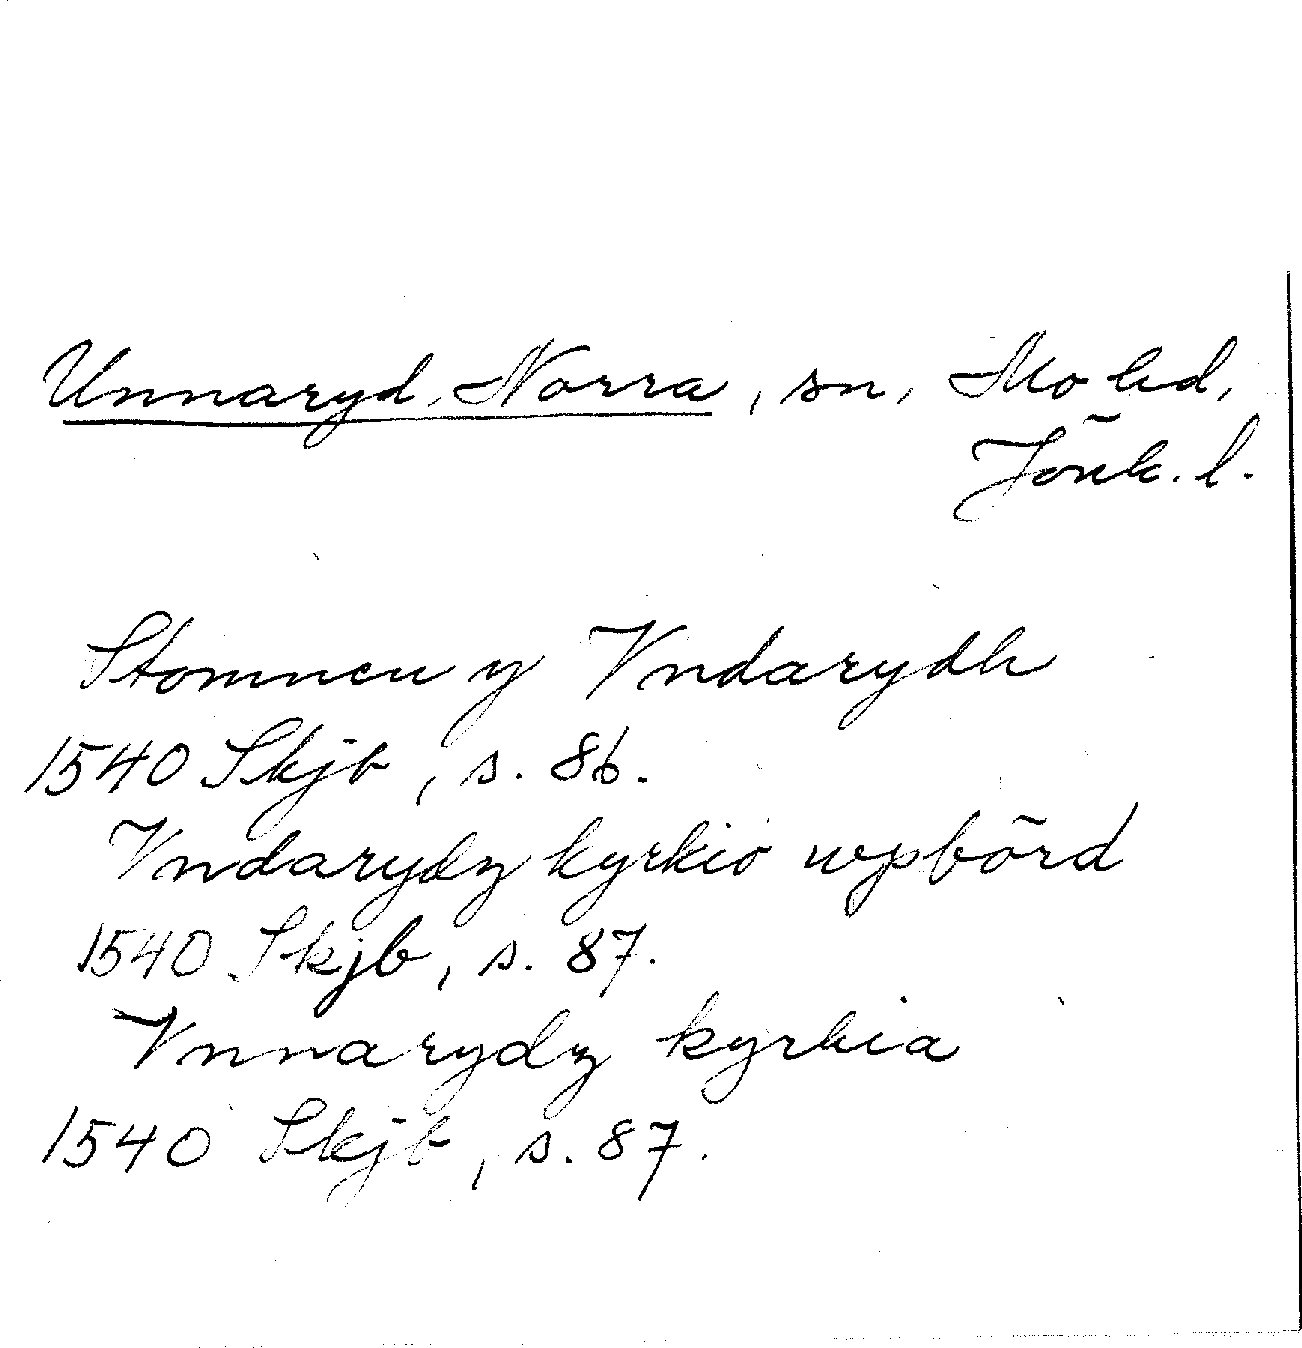 Unnaryd, Norra, sn, Mo hd,
Jönk. l.
Stomnen y Vndarydh
1540 Skjb, s. 86.
Vndarydz kyrkio wpbörd
1540 Skjb, s. 87.
Vnnarydz kyrkia
1540 Skjb, s. 87.